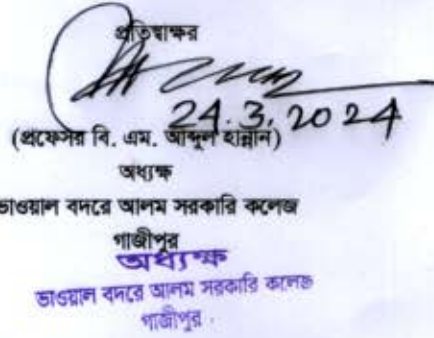 প্রতিস্বাক্ষর
24.3.2024
(প্রফেসর বি. এম. আব্দুল হান্নান)
অধ্যক্ষ
ভাওয়াল বদরে আলম সরকারি কলেজ
গাজীপুর
অধ্যক্ষ
ভাওয়াল বদরে আলম সরকারি কলেজ
গাজীপুর।